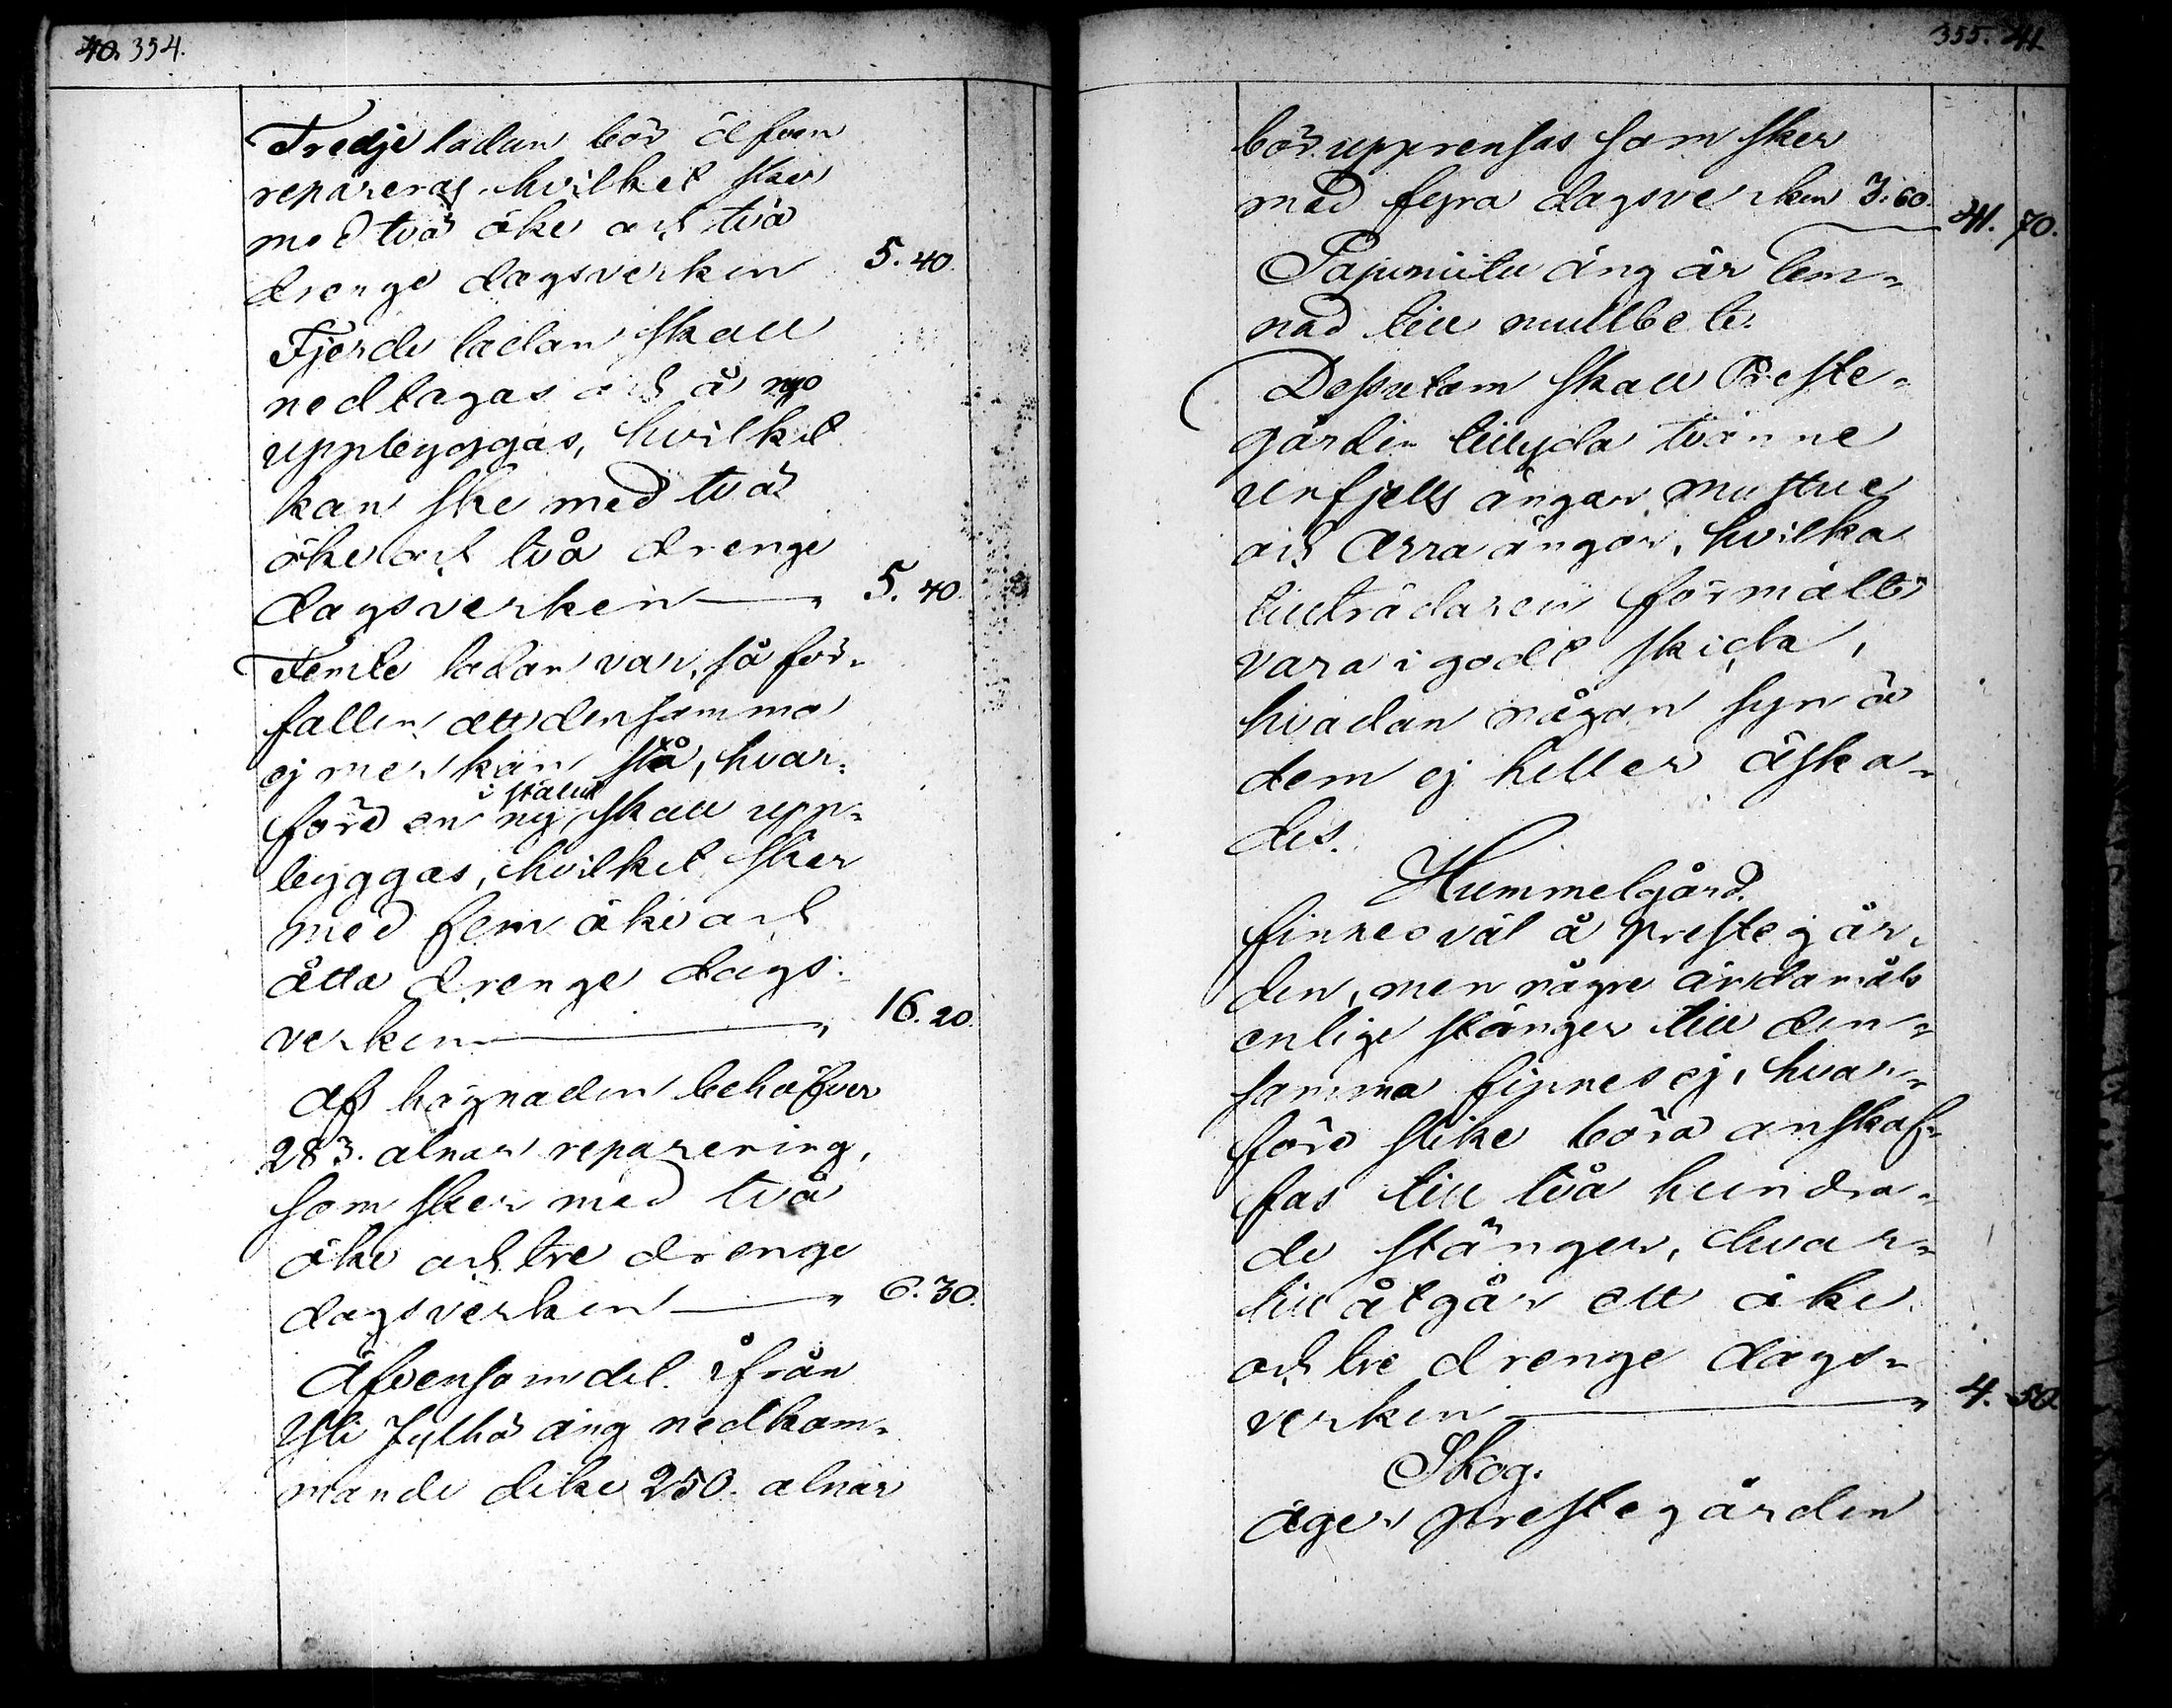 40. 354.
Tredje ladan bör äfven
repareras hvilket sker
med två öke och två
drenge dagsverken 5. 40.
Fjerde ladan skall
nedtagas och å nyo
uppbyggas, hvilket
kan ske med två
öke och två drenge
dagsverken — " 5. 40.
Femte ladan var så för-
fallen att densamma
ej mer kan stå, hvar-
före en ny i stället skall upp-
byggas, hvilket sker
med fem öke och
åtta drenge dags-
verken — " 16. 20.
Af hägnaden behöfver
283. alnar reparering,
som sker med två
öke och tre drenge
dagsverken — " 6. 30.
Äfvensom det ifrån
Yli Jylhä äng nedkom-
mande dike 250. alnar
355. 41
bör upprensas som sker
med fyra dagsverken 3. 60. 41. 70.
Pajuniitu äng är lem-
nad till mullbete.
Dessutom skall Preste-
gården tillyda tvänne
utfjells ängar
och ängar, hvilka
tillträdaren förmälte
vara i godt skick,
hvadan någon syn å
dem ej heller äska-
des.
Hummelgård.
finnes väl å prestegår-
den, men några ändamåls
enlige stänger till den-
samma finnes ej, hvar-
före slike böra anskaf-
fas till två hundra-
de stänger, hvar-
till åtgår ett öke
och tre drenge dags-
verken — " 4. 50
Skog.
äger prestegården